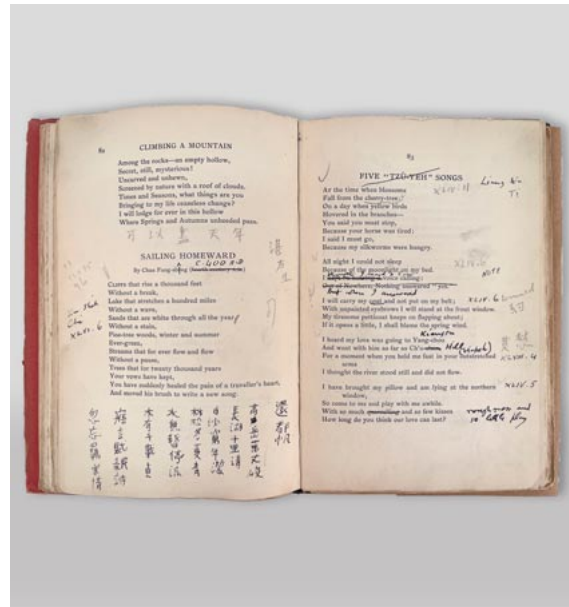 82
CLIMBING A MOUNTAIN
Among the rocks—an empty hollow,
Secret, still, mysterious!
Uncarved and unhewn,
Screened by nature with a roof of clouds.
Times and Seasons, what things are you
Bringing to my life ceaseless change?
I will lodge for ever in this hollow
Where Springs and Autumns unheeded pass.
可以 天年
SAILING HOMEWARD
C. 400 A.D
By Chan Fang-shēng
湛方生
Cliffs that rise a thousand feet
Without a break,
Lake that stretches a hundred miles
Without a wave,
Sands that are white through all the year,
Without a stain,
Pine-tree woods, winter and summer
Ever-green,
Streams that for ever flow and flow
Without a pause,
Trees that for twenty thousand years
Your vows have kept,
You have suddenly healed the pain of a traveller's heart,
And moved his brush to write a new song.
XLIV. 6
還都帆
高岳萬丈峻
長湖千里清
白沙窮年潔
林松冬夏青
水無暫停流
木有千載貞
寤言賦新詩
忽忘羈客情
83
FIVE "TZŬ-YEH" SONGS
At the time when blossoms
Fall from the cherry-tree;
On a day when yellow birds
Hovered in the branches—
You said you must stop,
Because your horse was tired:
I said I must go,
Because my silkworms were hungry.
Liang Wu
Ti
All night I could not sleep
Because of the moonlight on my bed.
Out of Nowhere, Nothing answered "yes."
But when I answered
I will carry my coat and not put on my belt;
XLIV. 6
With unpainted eyebrows I will stand at the front window.
My tiresome petticoat keeps on flapping about;
If it opens a little, I shall blame the spring wind.
Kiangsu
I heard my love was going to Yang-chou
And went with him as far as Ch'u-
For a moment when you held me fast in your outstretched
arms
XLVIII. 4
I thought the river stood still and did not flow.
I have brought my pillow and am lying at the northern
window,
XLIV. 5
So come to me and play with me awhile.
With so much quarrelling and so few kisses
How long do you think our love can last?
roughness and
so little play